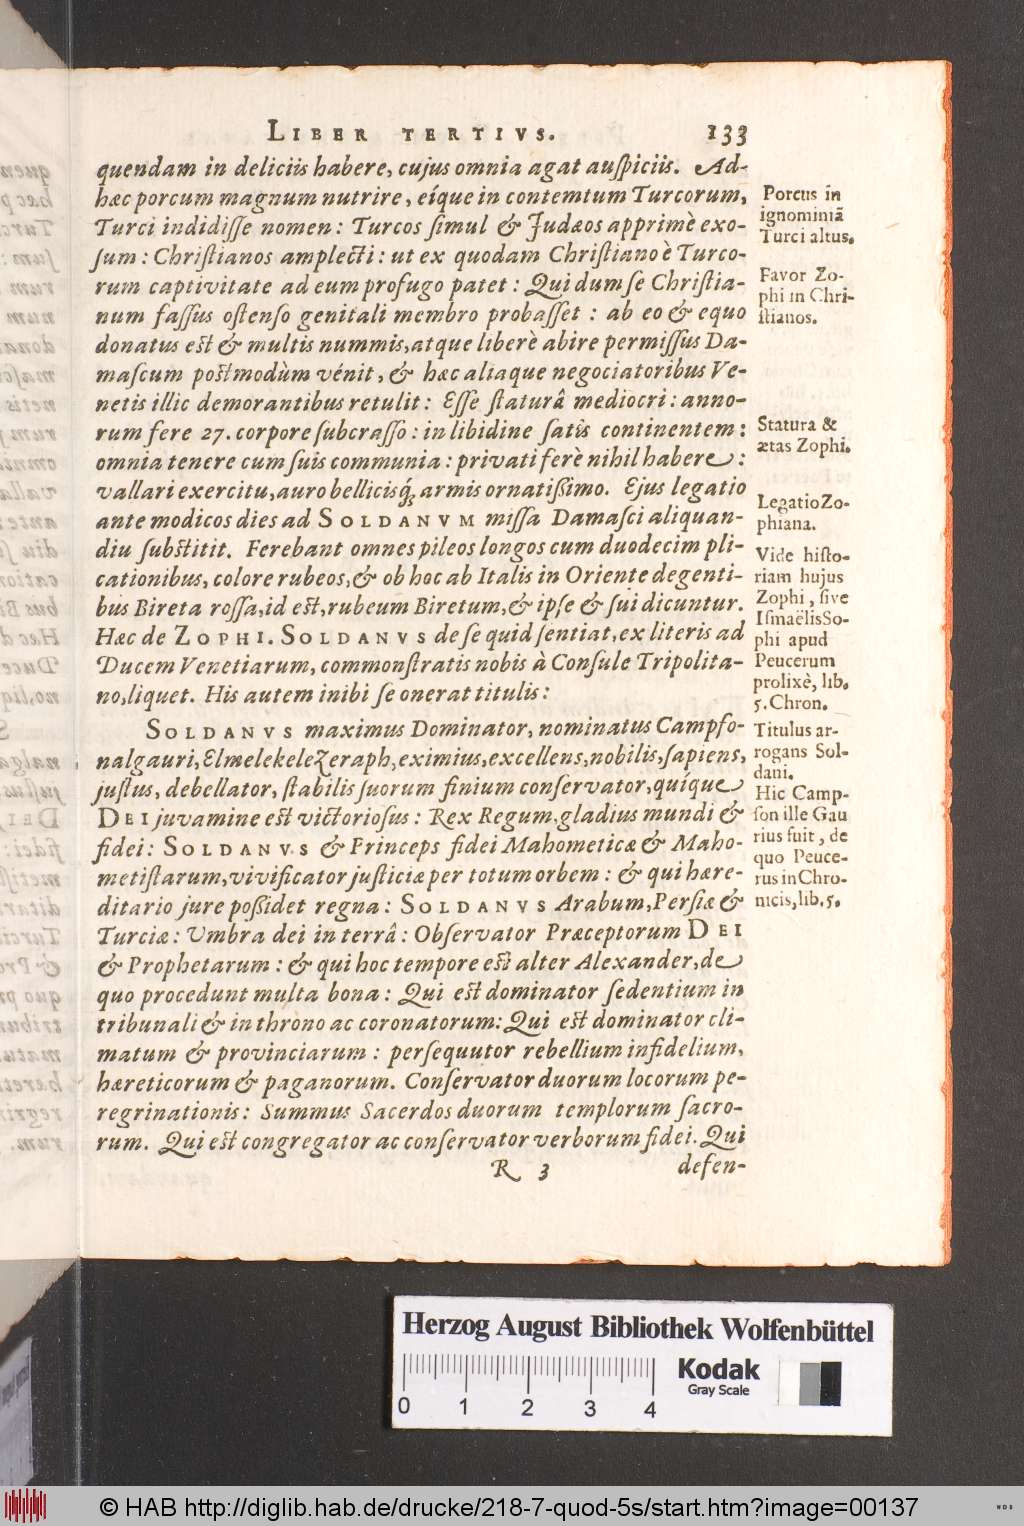 LIBER TERTIVS. 133
quendam in deliciis habere, cujus omnia agat auspiciis. Ad-
hæc porcum magnum nutrire, eíque in contemtum Turcorum,
Turci indidisse nomen: Turcos simul & Judæos apprimè exo-
sum: Christianos amplecti: ut ex quodam Christiano è Turco-
rum captivitate ad eum profugo patet: Qui dum se Christia-
num fassus ostenso genitali membro probasset: ab eo & equo
donatus est & multis nummis, atque liberè abire permissus Da-
mascum postmodùm vénit, & hæc aliaque negociatoribus Ve-
netis illic demorantibus retulit: Esse staturâ mediocri: anno-
rum fere 27. corpore subcrasso: in libidine satis continentem:
omnia tenere cum suis communia: privati ferè nihil habere:
vallari exercitu, auro bellicisq́; armis ornatißimo. Ejus legatio
ante modicos dies ad SOLDANVM missa Damasci aliquan-
diu substitit. Ferebant omnes pileos longos cum duodecim pli-
cationibus, colore rubeos, & ob hoc ab Italis in Oriente degenti-
bus Bireta rossa, id est, rubeum Biretum, & ipse & sui dicuntur.
Hæc de ZOPHI. SOLDANVS de se quid sentiat, ex literis ad
Ducem Venetiarum, commonstratis nobis à Consule Tripolita-
no, liquet. His autem inibi se onerat titulis:
SOLDANVS maximus Dominator, nominatus Campso-
nalgauri, Elmelekelezeraph, eximius, excellens, nobilis, sapiens,
justus, debellator, stabilis suorum finium conservator, quíque
DEI juvamine est victoriosus: Rex Regum, gladius mundi &
fidei: SOLDANVS & Princeps fidei Mahometicæ & Maho-
metistarum, vivificator justiciæ per totum orbem: & qui hære-
ditario jure poßidet regna: SOLDANVS Arabum, Persiæ &
Turciæ: Umbra dei in terrâ: Observator Præceptorum DEI
& Prophetarum: & qui hoc tempore est alter Alexander, de
quo procedunt multa bona: Qui est dominator sedentium in
tribunali & in throno ac coronatorum: Qui est dominator cli-
matum & provinciarum: persequutor rebellium infidelium,
hæreticorum & paganorum. Conservator duorum locorum pe-
regrinationis: Summus Sacerdos duorum templorum sacro-
rum. Qui est congregator ac conservator verborum fidei. Qui
R 3 defen-
Porcus in
ignominiā
Turci altus.
Favor Zo-
phi in Chri-
stianos.
Statura &
ætas Zophi.
Legatio Zo-
phiana.
Vide histo-
riam hujus
Zophi, sive
Ismaëlis So-
phi apud
Peucerum
prolixè, lib.
5. Chron.
Titulus ar-
rogans Sol-
dani.
Hic Camp-
son ille Gau
rius fuit, de
quo Peuce-
rus in Chro-
nicis, lib. 5.
Herzog August Bibliothek Wolfenbüttel
Kodak
Gray Scale
0 1 2 3 4
© HAB http://diglib.hab.de/drucke/218-7-quod-5s/start.htm?image=00137